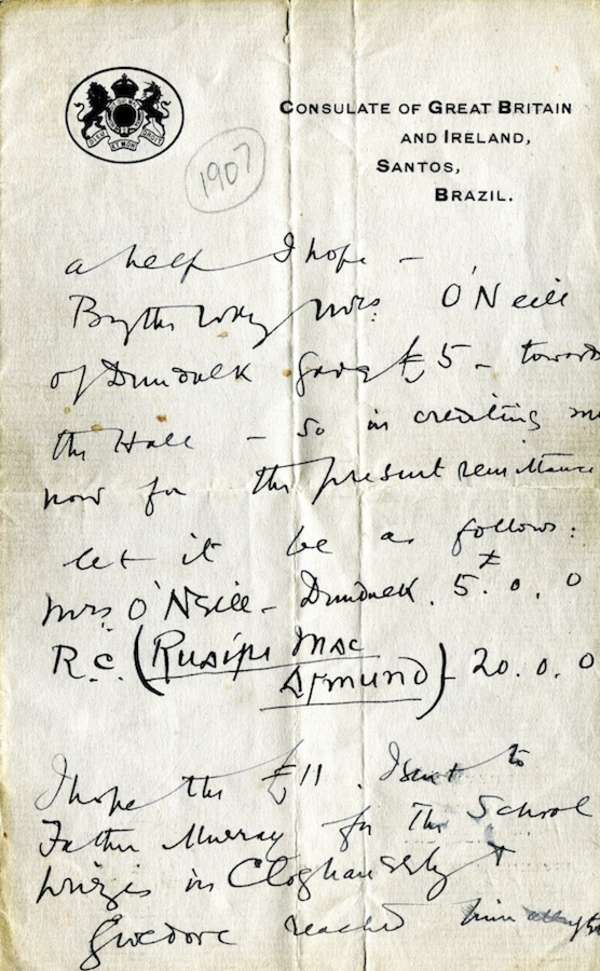 CONSULATE OF GREAT BRITAIN
AND IRELAND,
SANTOS,
BRAZIL.
1907
a help I hope –
By the way Mrs. O'Neill
of Dundalk gave £5 – towards
the Hall – so in crediting me
now for the present remittance
let it be as follows:
Mrs O'Neill – Dundalk. 5. 0. 0
R.C. (Ruaipi Mac
Asmund) – 20. 0. 0
I hope the £11 I sent to
Father Murray for The School
prizes in Cloghaneely &
Gweedore reached him